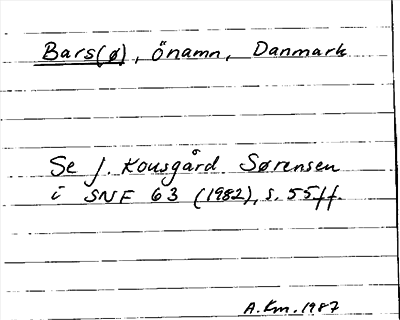 Bars(ø), önamn, Danmark
Se J. Kousgård Sørensen
i SNF 63 (1982), s. 55ff.
A.Km. 1987